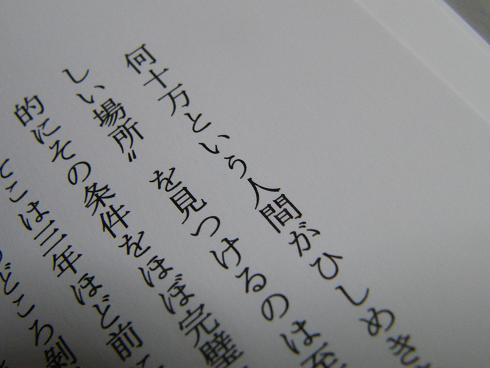 何十万という人間がひしめき
しい場所〟を見つけるのは至
的にその条件をほぼ完璧
こは三年ほど前
どころ